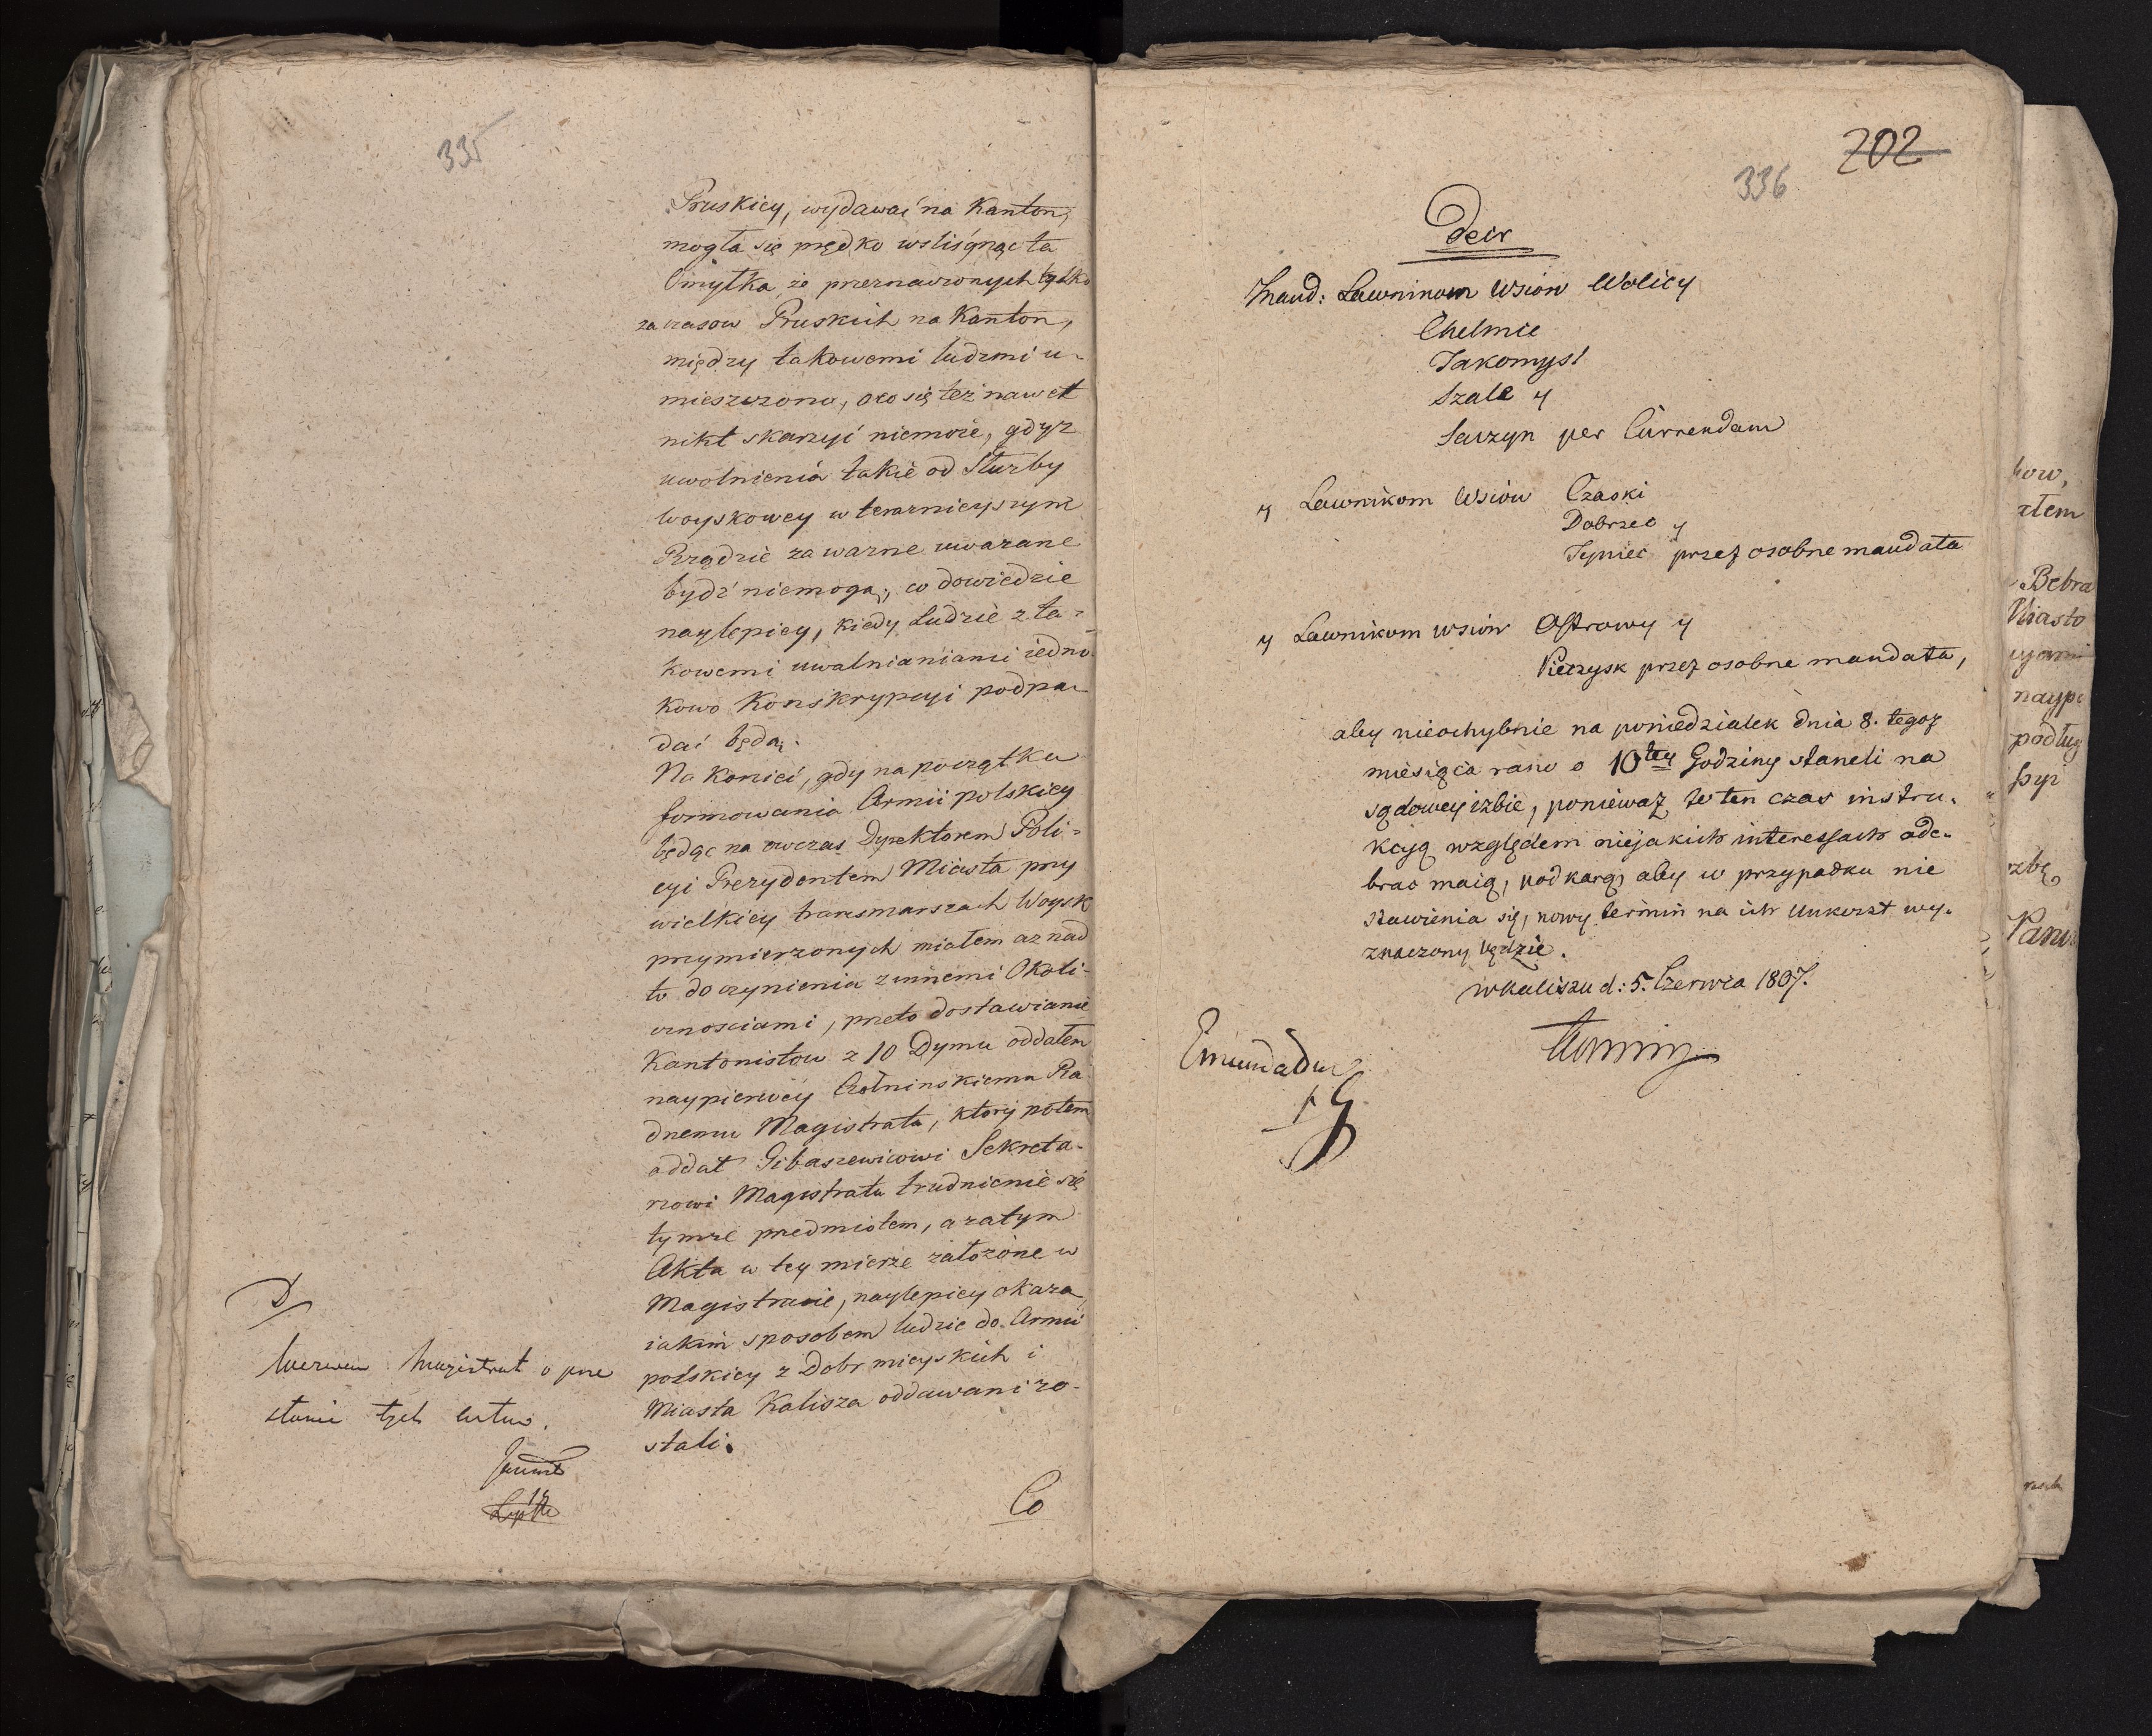 335
Pruskiey, wydawać na Kanton,
mogła się prędko wsliśgnąc ta
Omyłka, że przeznaczonych tylko
za czasow Pruskich na Kanton,
między takowemi ludzmi u-
mieszczono, oco się też nawet
nikt skarzyć niemoże, gdyż
uwolnienia takie od Służby
woyskowey w teraznieyszym
Rządzie za wazne uwazane
bydź niemogą, co dowiedzie
naylepiey, kiedy Ludzie z ta-
kowemi uwalnianiami iedna-
kowo Konskrypcyi podpa-
dać będą.
Na koniec, gdy na początku
formowania Armii polskiey
będąc na owczas Dyrektorem Poli-
cyi Prezydentem Miasta przy
wielkiey transmarszach Woysk
przymierzonych miałem az nad
to do czynienia z innemi Okoli-
cznosciami, przeto dostawianie
Kantonistow z 10 Dymu oddałem
naypierwey Czołninskiemu Ra
dnemu Magistratu, ktory potem
oddał Gibaszewicowi Sekreta-
rzowi Magistratu trudnienie się
tymze przedmiotem, a zatym
Akta w tey mierze założone w
Magistracie, naylepiey okaza,
iakim sposobem ludzie do Armii
polskiey z Dobr mieyskich i
Miasta Kalisza oddawani zo-
stali.
Co
D
Magistrat o prze
słanie tych
202
336
Decr
Mand: Ławnikom Wsiów Wolicy
Chelmce
Jakomysl
Szale y
Saczyn per Currendam
y Lawnikom Wsiów Czaski
Dobrzec y
Tyniec przez osobne mandata
y Lawnikom wsiów Ostrowy y
Pieczysk przez osobne mandata,
aby nieochybnie na poniedzialek dnia 8. tegoz
miesiąca rano o 10tey Godziny staneli na
sądowey izbie, poniewaz w ten czas instru-
kcyą względem niejakich interessach ode-
brac maią, pod karą, aby w przypadku nie
stawienia się, nowy termin na ich Unkoszt wy-
znaczony będzie.
w Kaliszu d: 5. Czerwca 1807.
how,
ztem
Bebra
Miasto
naype
podług
rzbę